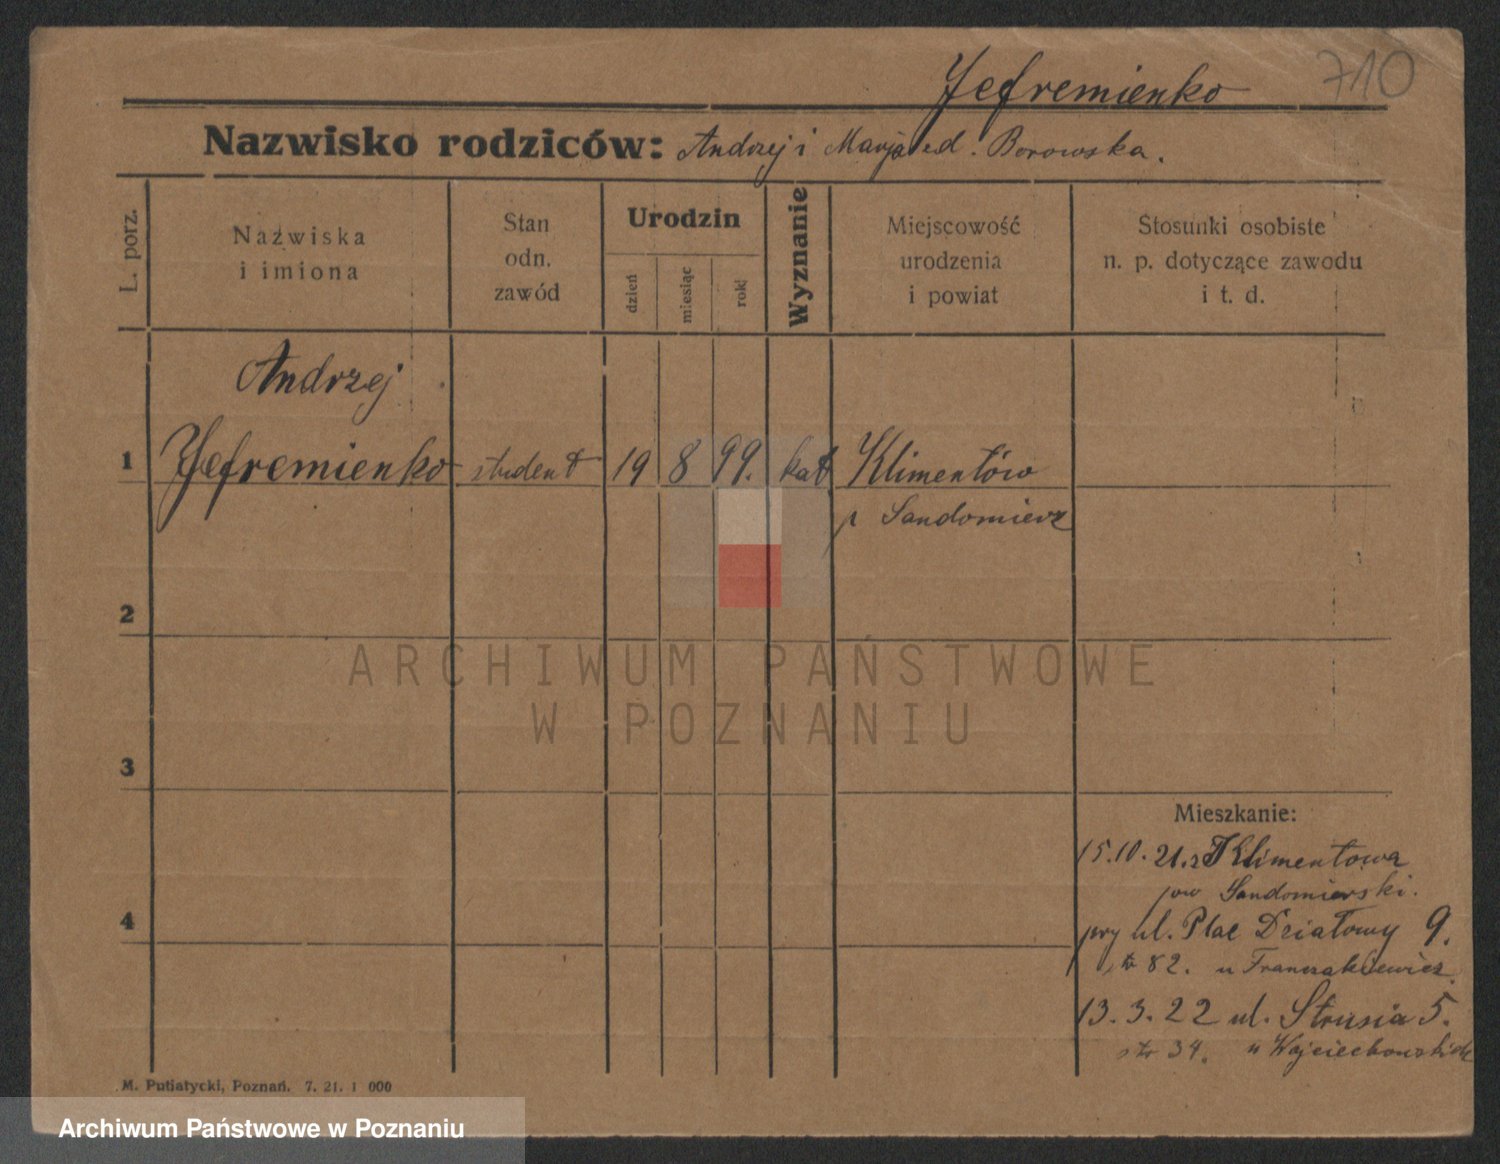 Jefremienko 710
Nazwisko rodziców: Andrzej i Marja ed. Borowska.
L. porz.
Nazwiska
i imiona
Stan
odn.
zawód
Urodzin
dzień
miesiąc
rok
Wyznanie
Miejscowość
urodzenia
i powiat
Stosunki osobiste
n. p. dotyczące zawodu
i t. d.
Andrzej
1 Jefremienko student 19 8 99. kat. Klimentów
p Sandomierz
2
ARCHIWUM PAŃSTWOWE
W POZNANIU
3
Mieszkanie:
15.10.21. z Klimentowa
pow Sandomierski.
4
przy ul. Plac Działowy 9.
str 82. u
13.3.22 ul. Strusia 5.
str 34. u Wojciechowskich
M. Putiatycki, Poznań. 7. 21. 1 000
Archiwum Państwowe w Poznaniu